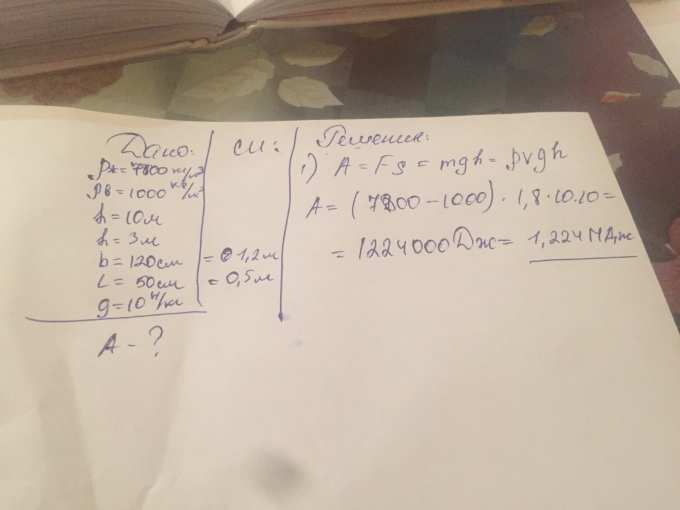 Дано:
ρж = 7800 кг/м³
ρв = 1000 кг/м³
h = 10 м
h = 3 м
b = 120 см
L = 50 см
g = 10 Н/кг
A - ?
СИ:
= 1,2 м
= 0,5 м
Решение:
1) A = FS = mgh = ρvgh
A = (7800 - 1000) · 1,8 · 10 · 10 =
= 1224000 Дж = 1,224 МДж